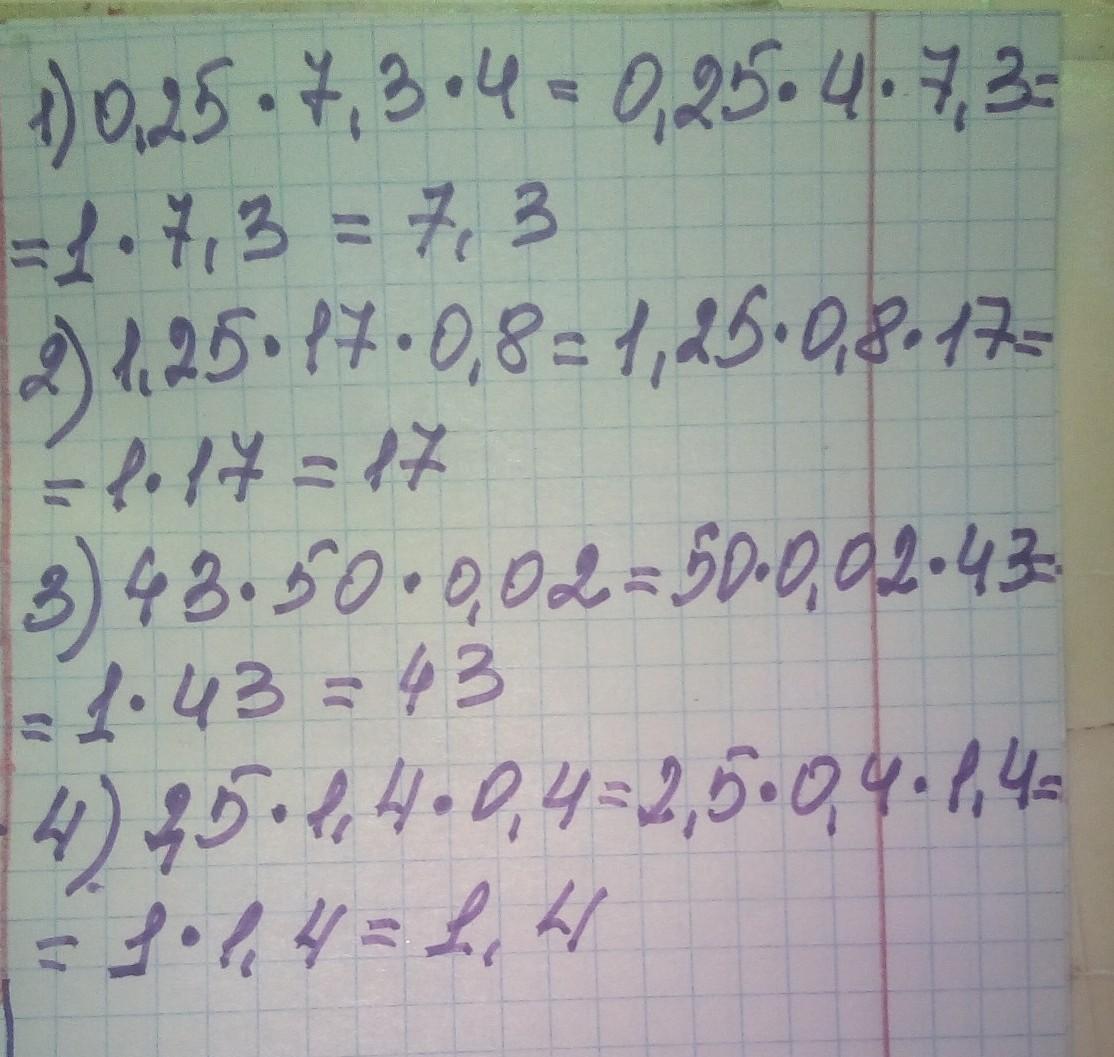 1) 0,25 · 7,3 · 4 = 0,25 · 4 · 7,3 =
= 1 · 7,3 = 7,3
2) 1,25 · 17 · 0,8 = 1,25 · 0,8 · 17 =
= 1 · 17 = 17
3) 43 · 50 · 0,02 = 50 · 0,02 · 43 =
= 1 · 43 = 43
4) 2,5 · 1,4 · 0,4 = 2,5 · 0,4 · 1,4 =
= 1 · 1,4 = 1,4